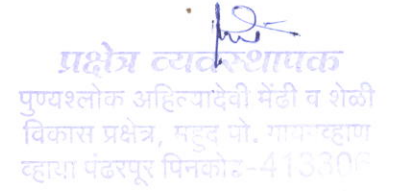 प्रक्षेत्र व्यवस्थापक
पुण्यश्लोक अहिल्यादेवी मेंढी व शेळी
विकास प्रक्षेत्र, महुद पो.
व्हाया पंढरपूर पिनकोड-41330